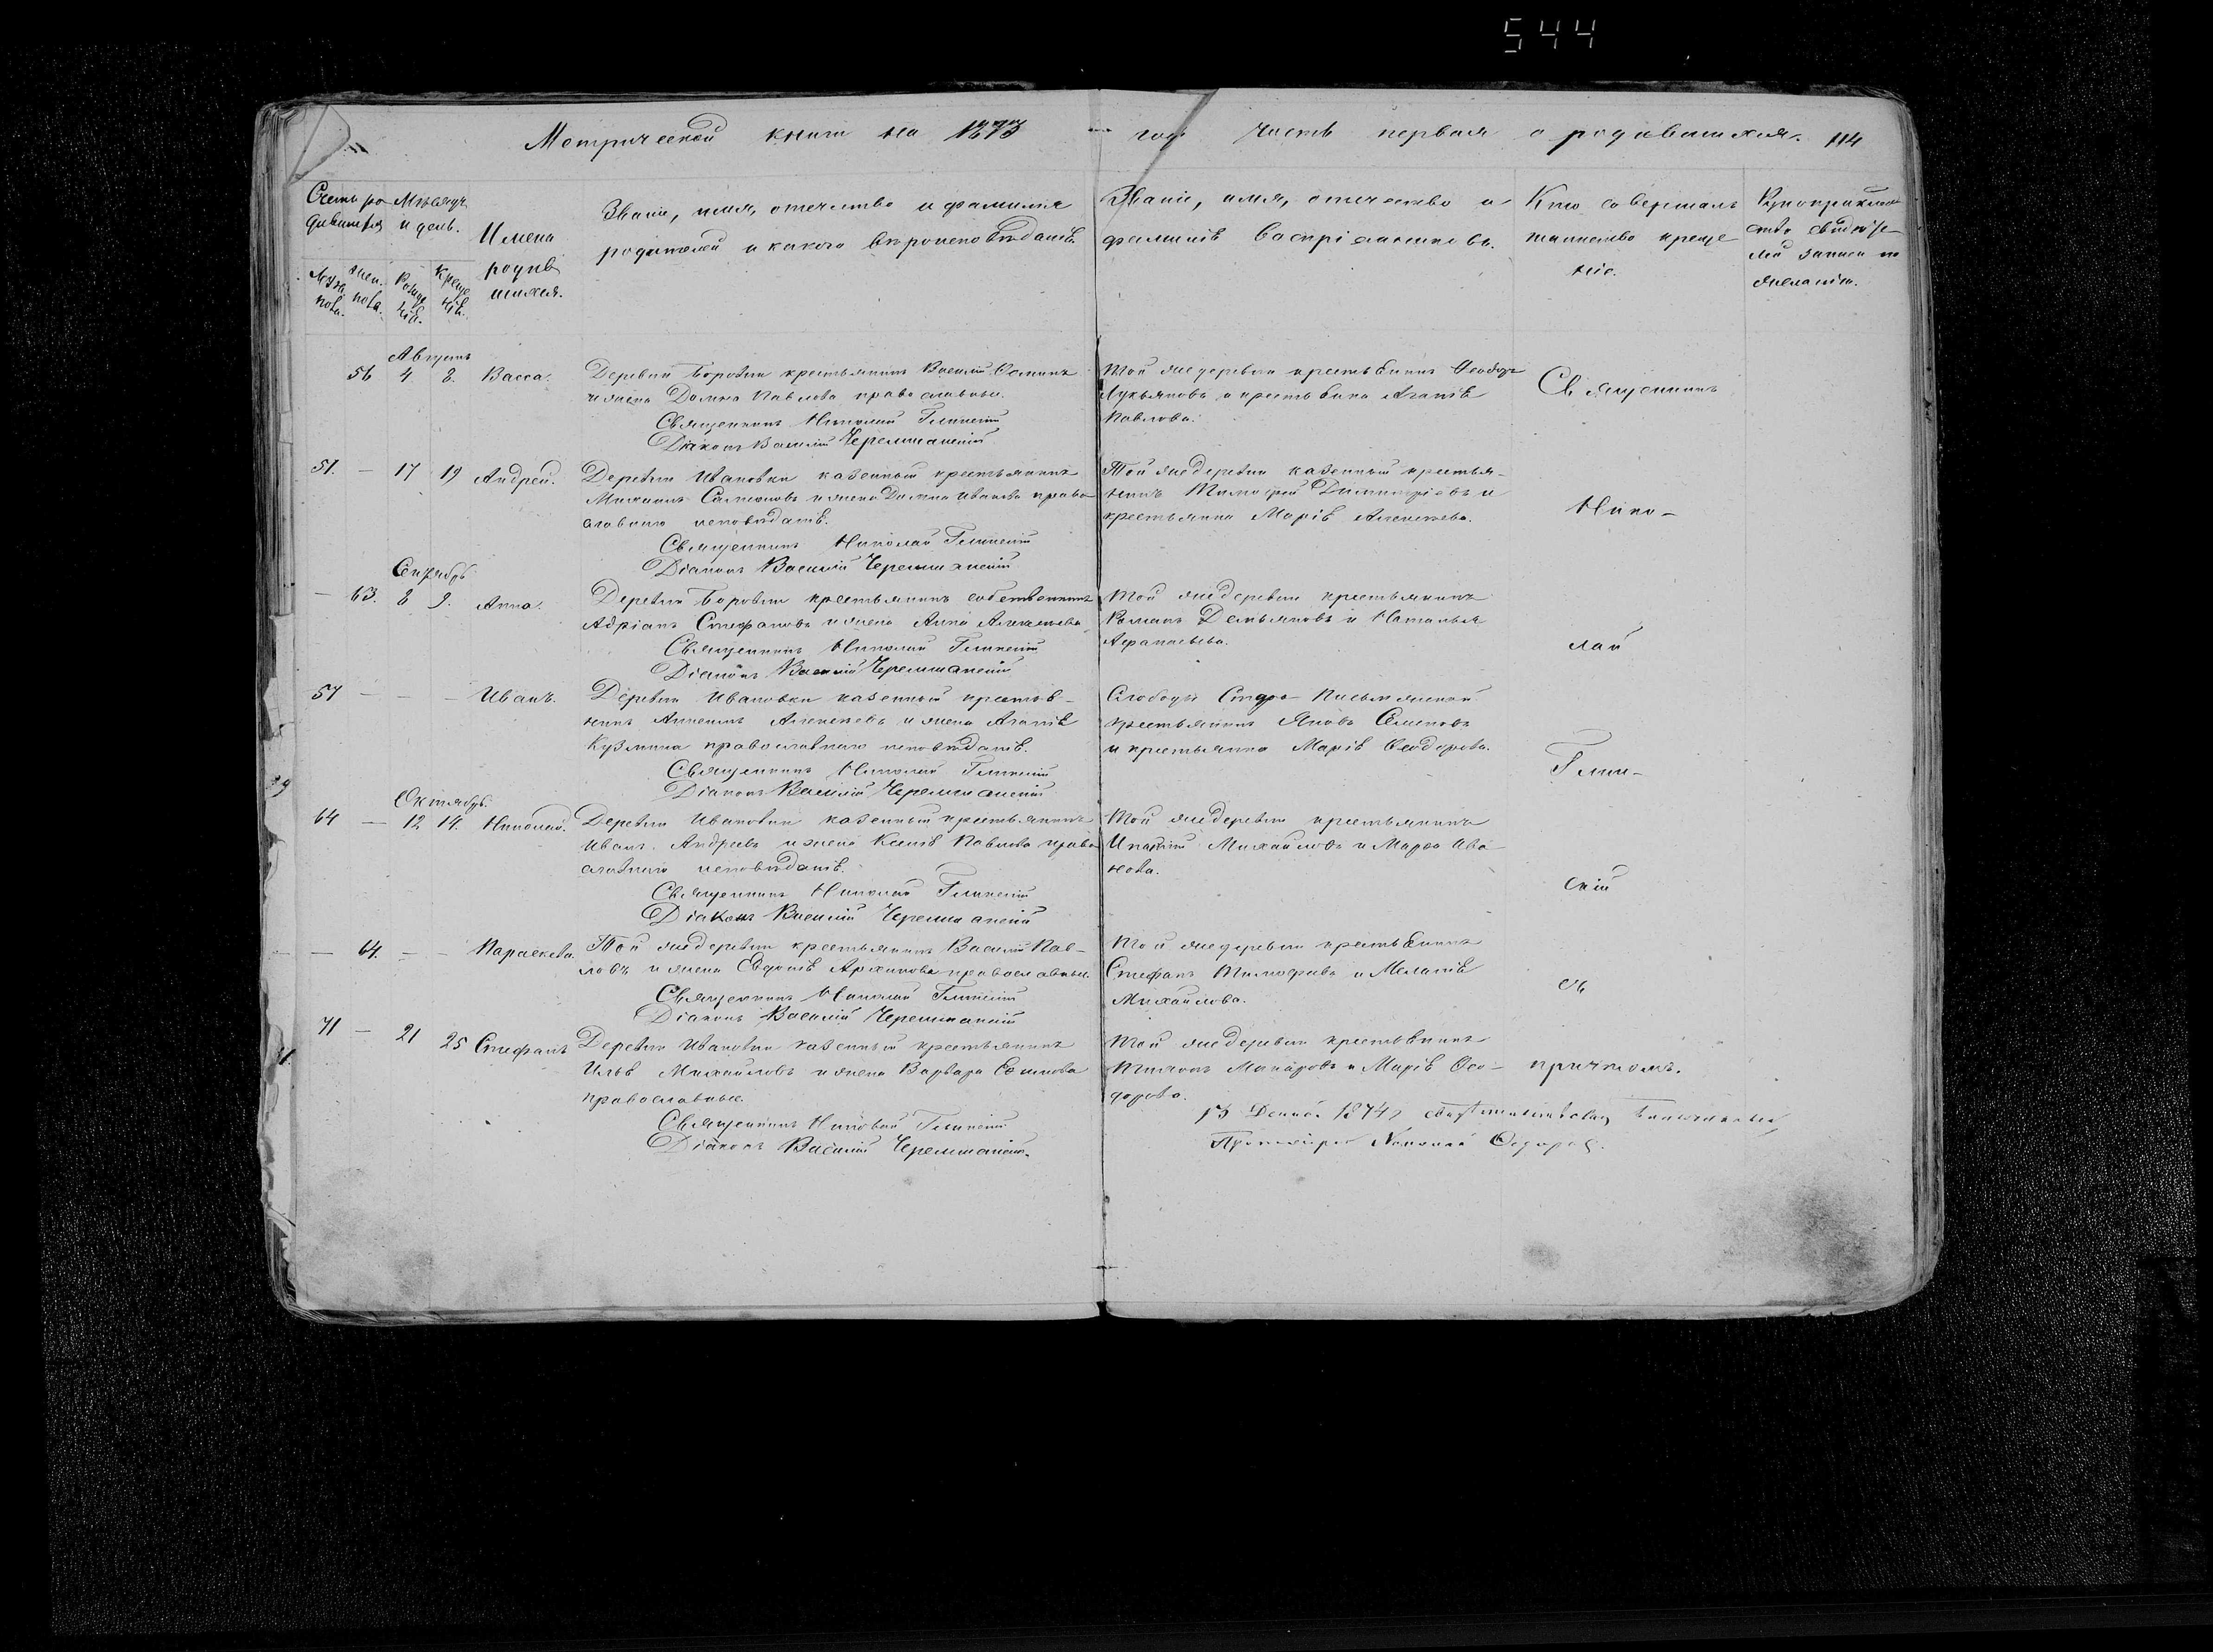 544
Метрической книги на 1873 годъ часть первая о родившихся. 114
Счетъ ро-
дившихся
Мѣсяцъ
и день.
Имена
родив
шихся.
Званіе, имя, отечество и фамилія
родителей и какого вѣроисповѣданія.
Званіе, имя, отечество и
фамилія воспріемниковъ.
Кто совершалъ
таинство креще
нія.
Рукоприклад
ство свидѣте
лей записи по
желанію.
Муж.
пола.
жен.
пола.
Рожде
нія.
Креще
нія.
Августъ
56 4. 8. Васса.
Деревни Боровки крестьянинъ Василій
и жена Домна Павлова православные.
Священникъ Николай Глинскій
Діаконъ Василій Черемшанскій
Той же деревни крестьянинъ Феодоръ
Лукьяновъ и крестьянка Агапія
Павлова.
Священникъ
51. — 17 19 Андрей.
Деревни Ивановки казенный крестьянинъ
Михаилъ и жена Домна Иванова право
славнаго исповѣданія.
Священникъ Николай Глинскій
Діаконъ Василій Черемшанскій
Той же деревни казенный крестья-
нинъ Тимофей Димитріевъ и
крестьянка Марія Алексѣева.
Нико-
Сентябрь
— 63. 8 9. Анна.
Деревни Боровки крестьянинъ собственникъ
Адріанъ Стефановъ и жена Анна Алексѣева
Священникъ Николай Глинскій
Діаконъ Василій Черемшанскій
Той же деревни крестьянинъ
Романъ Демьяновъ и Наталья
Афанасьева.
лай
57 — — — Иванъ.
Деревни Ивановки казенный крестья-
нинъ Алексѣевъ и жена Агапія
Кузмина православнаго исповѣданія.
Священникъ Николай Глинскій
Діаконъ Василій Черемшанскій
Слободы Старо-Письмянской
крестьянинъ Яковъ Семеновъ
и крестьянка Марія Феодорова.
Глин-
Октябрь
64 — 12 14. Николай.
Деревни Ивановки казенный крестьянинъ
Иванъ Андреевъ и жена Ксенія Павлова право
славнаго исповѣданія.
Священникъ Николай Глинскій
Діаконъ Василій Черемшанскій
Той же деревни крестьянинъ
Ипатій Михайловъ и Марфа Ива
нова.
скій
— 64. — — Параскева.
Той же деревни крестьянинъ Василій Пав-
ловъ и жена Евдокія Архипова православные.
Священникъ Николай Глинскій
Діаконъ Василій Черемшанскій
Той же деревни крестьянинъ
Стефанъ Тимофеевъ и Меланія
Михайлова.
съ
71 — 21 25 Стефанъ
Деревни Ивановки казенный крестьянинъ
Илья Михайловъ и жена Варвара Семенова
православные.
Священникъ Николай Глинскій
Діаконъ Василій Черемшанскій.
Той же деревни крестьянинъ
Тихонъ Макаровъ и Марія Фео-
дорова.
причтомъ.
1874
Протоіерей Николай Феодоровъ.